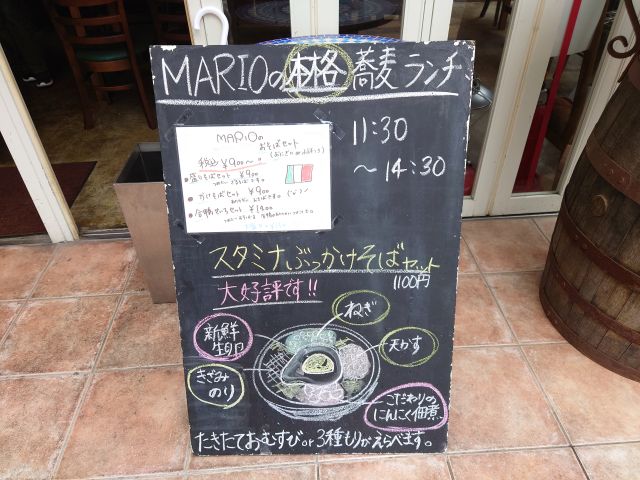 MARIOの本格蕎麦ランチ
11:30
～14:30
MARIOの
おそばセット
税込 ¥900～
盛りそばセット ¥900
かけそばセット ¥900
スタミナぶっかけそばセット
1100円
大好評です!!
ねぎ
新鮮
生卵
天かす
きざみ
のり
こだわりの
にんにく佃煮
たきたておむすび or 3種もりかえらべます。